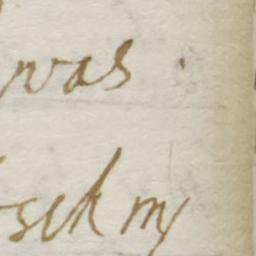 was
seek my